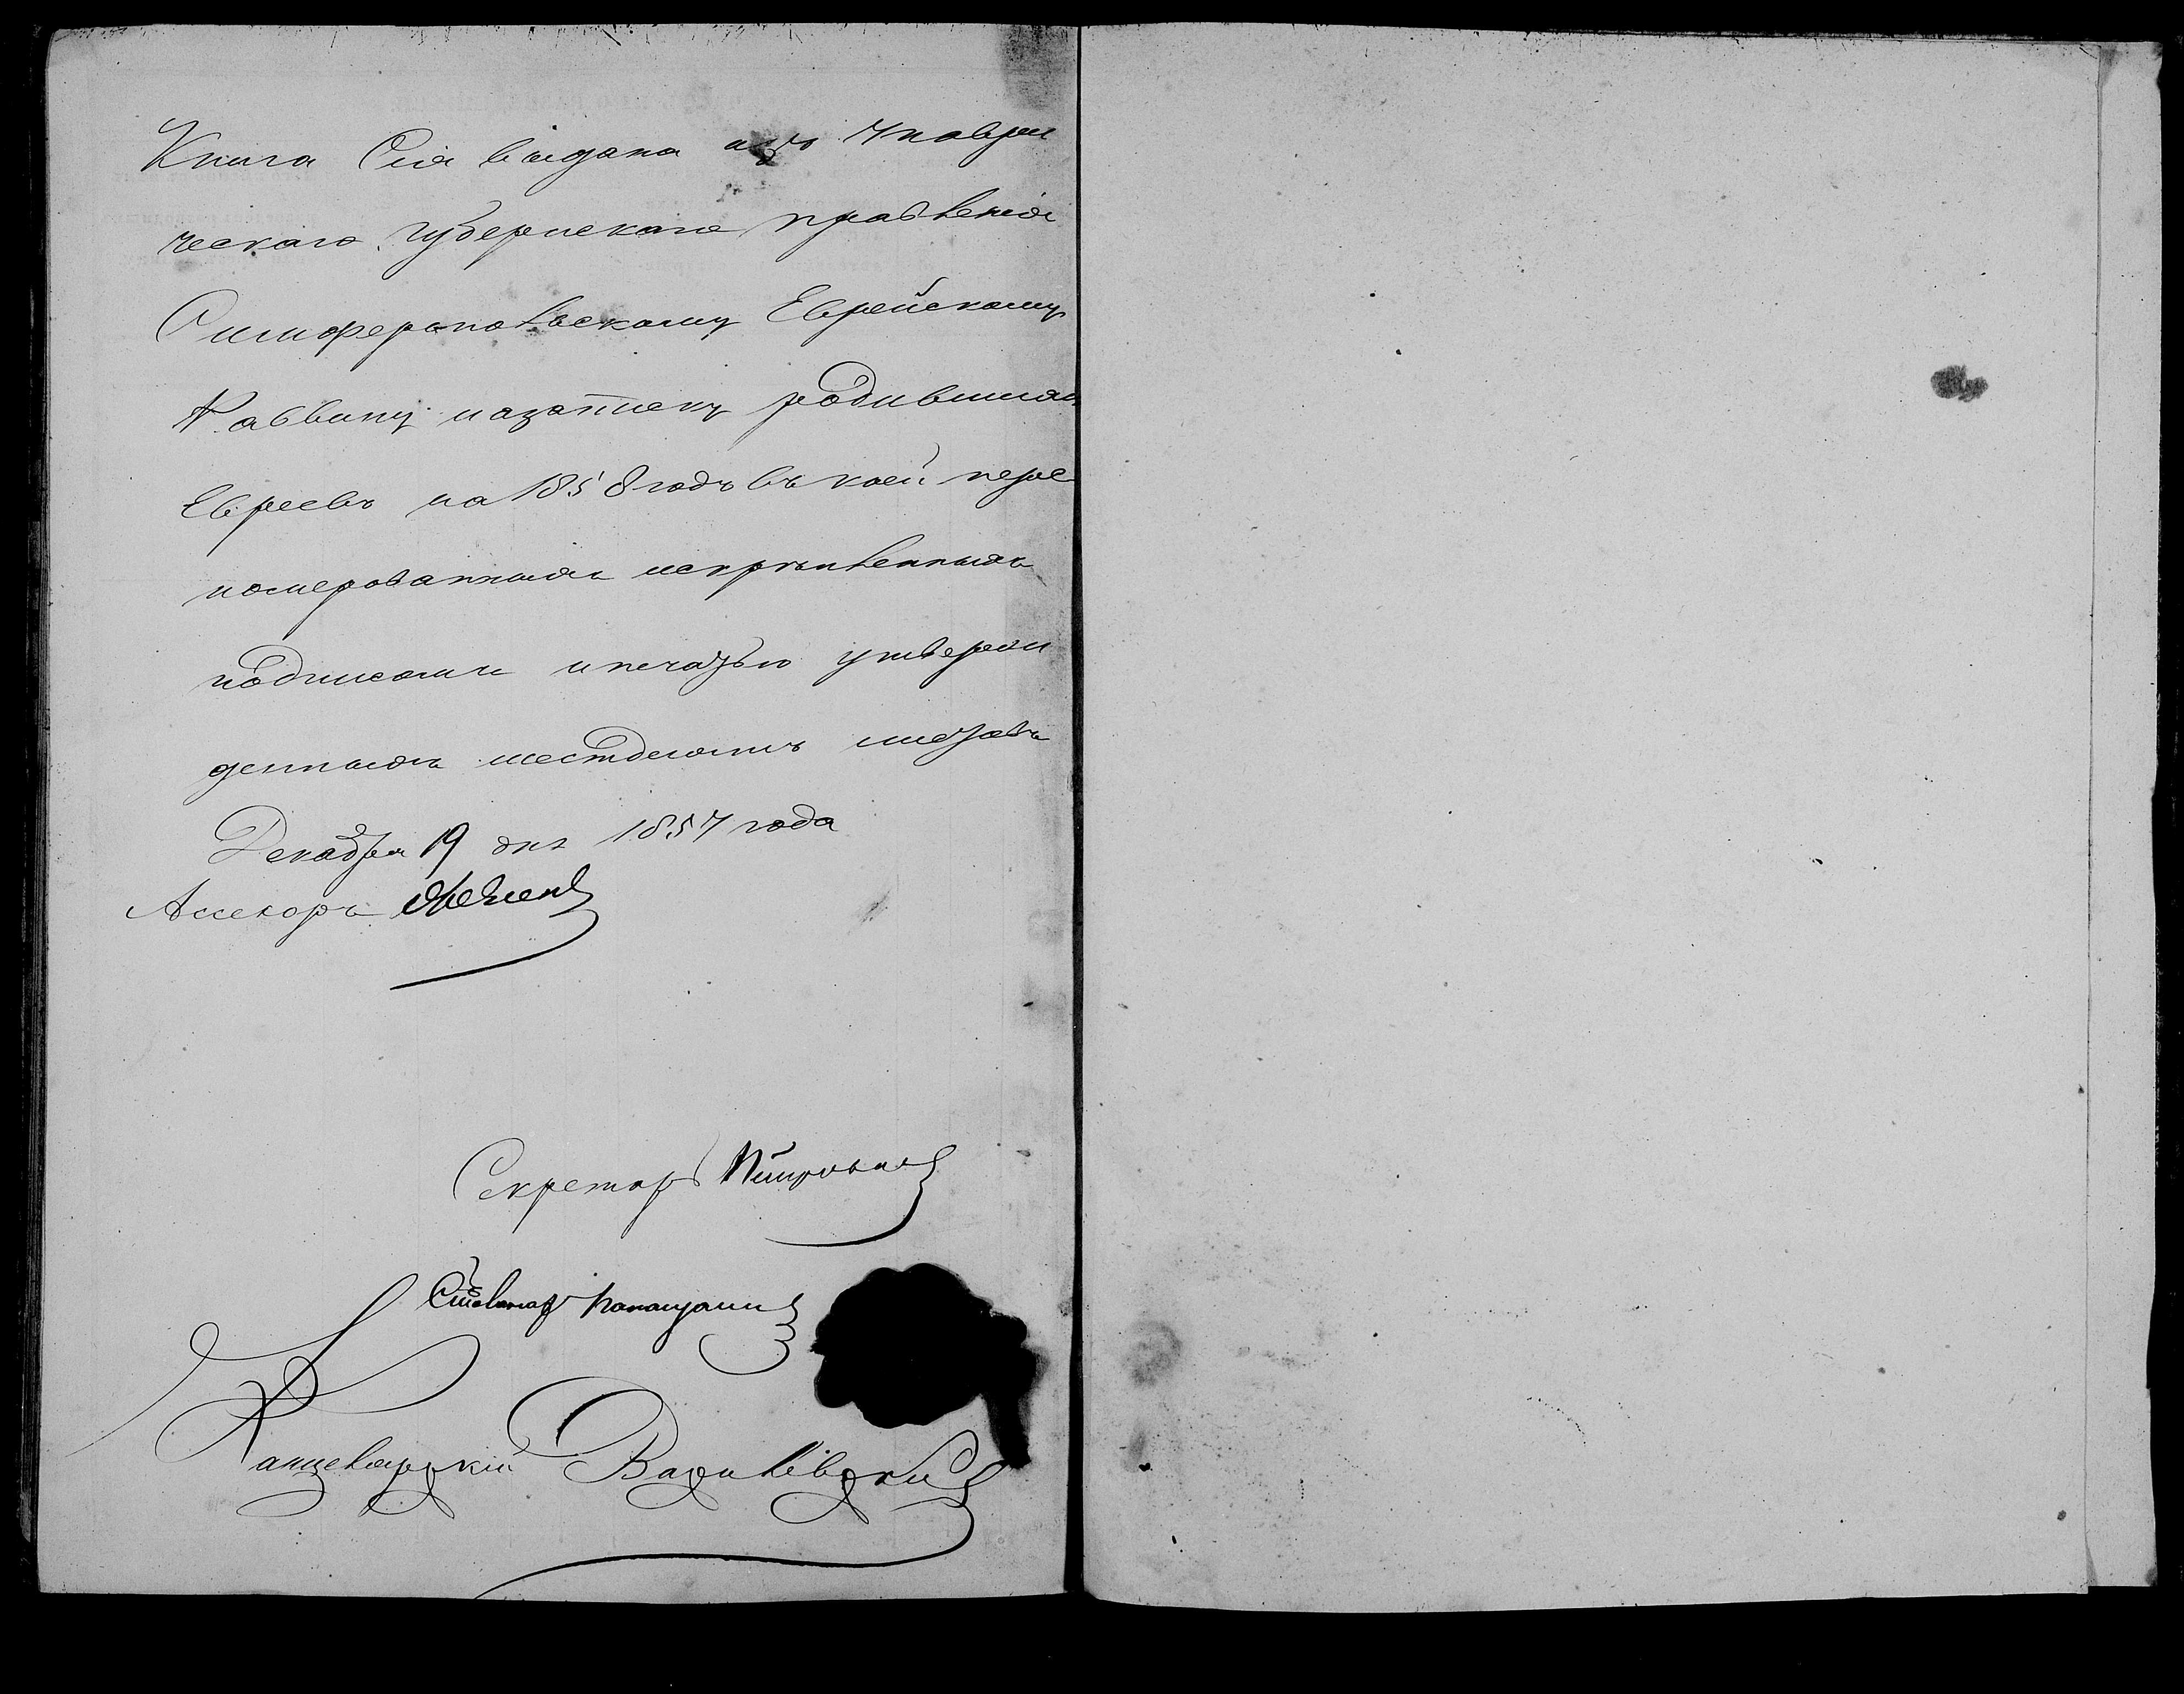 Книга Сія выдана изъ Таври
ческаго Губернскаго правленія
Симферопольскому Еврейскому
Раввину на записку родившихся
Евреевъ на 1858 годъ въ коей пере
номерованныхъ искрѣпленныхъ
подписомъ и печатью утверж
денныхъ шестдесятъ листовъ
Декабря 19 дня 1857 года
Ассесоръ
Секретарь
Канцелярскій Василевскій